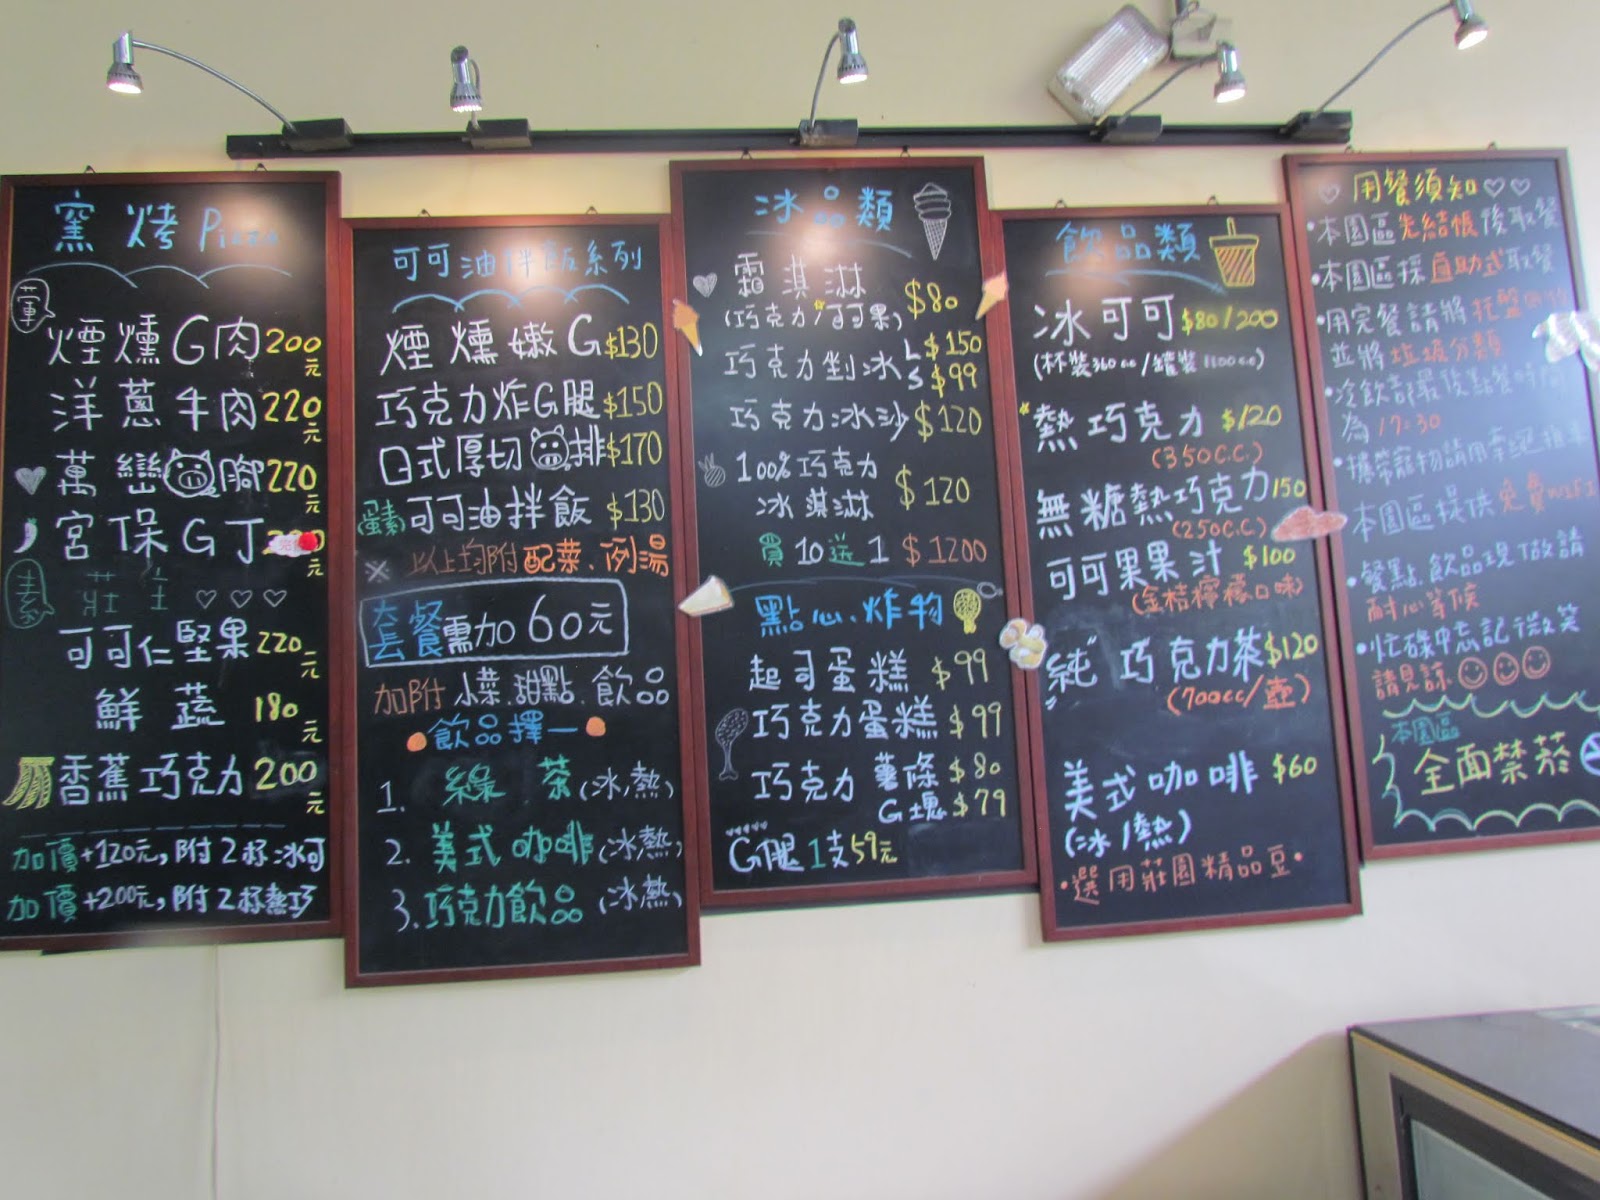 窯烤Pizza
葷
煙燻G肉200元
洋蔥牛肉220元
萬巒腳220元
宮保G丁
元
素
莊主
可可仁堅果220元
鮮蔬180元
香蕉巧克力200元
加價+120元,附2杯冰可
加價+200元,附2杯熱巧
可可油拌飯系列
煙燻嫩G$130
巧克力炸G腿$150
日式厚切排$170
蛋素可可油拌飯$130
※以上均附配菜.例湯
套餐需加60元
加附小菜.甜點.飲品
飲品擇一
1.綠茶(冰/熱)
2.美式咖啡(冰熱)
3.巧克力飲品(冰熱)
冰品類
霜淇淋$80
(巧克力/可可果)
巧克力剉冰L$150
S$99
巧克力冰沙$120
100%巧克力
冰淇淋$120
買10送1$1200
點心.炸物
起司蛋糕$99
巧克力蛋糕$99
巧克力薯條$80
G塊$79
G腿1支59元
飲品類
冰可可$80/200
(杯裝360cc/罐裝1100cc)
熱巧克力$120
(350C.C.)
無糖熱巧克力150
(250C.C.)
可可果果汁$100
(金桔檸檬口味)
"純"巧克力茶$120
(700cc/壺)
美式咖啡$60
(冰/熱)
•選用莊園精品豆•
用餐須知
•本園區先結帳後取餐
•本園區採自助式取餐
•用完餐請將托盤
並將垃圾分類
•冷飲部最後點餐時間
為17:30
•攜帶寵物請用牽繩
本園區提供免費WIFI
•餐點.飲品現做請
耐心等候
•忙碌中忘記微笑
請見諒
本園區
全面禁菸